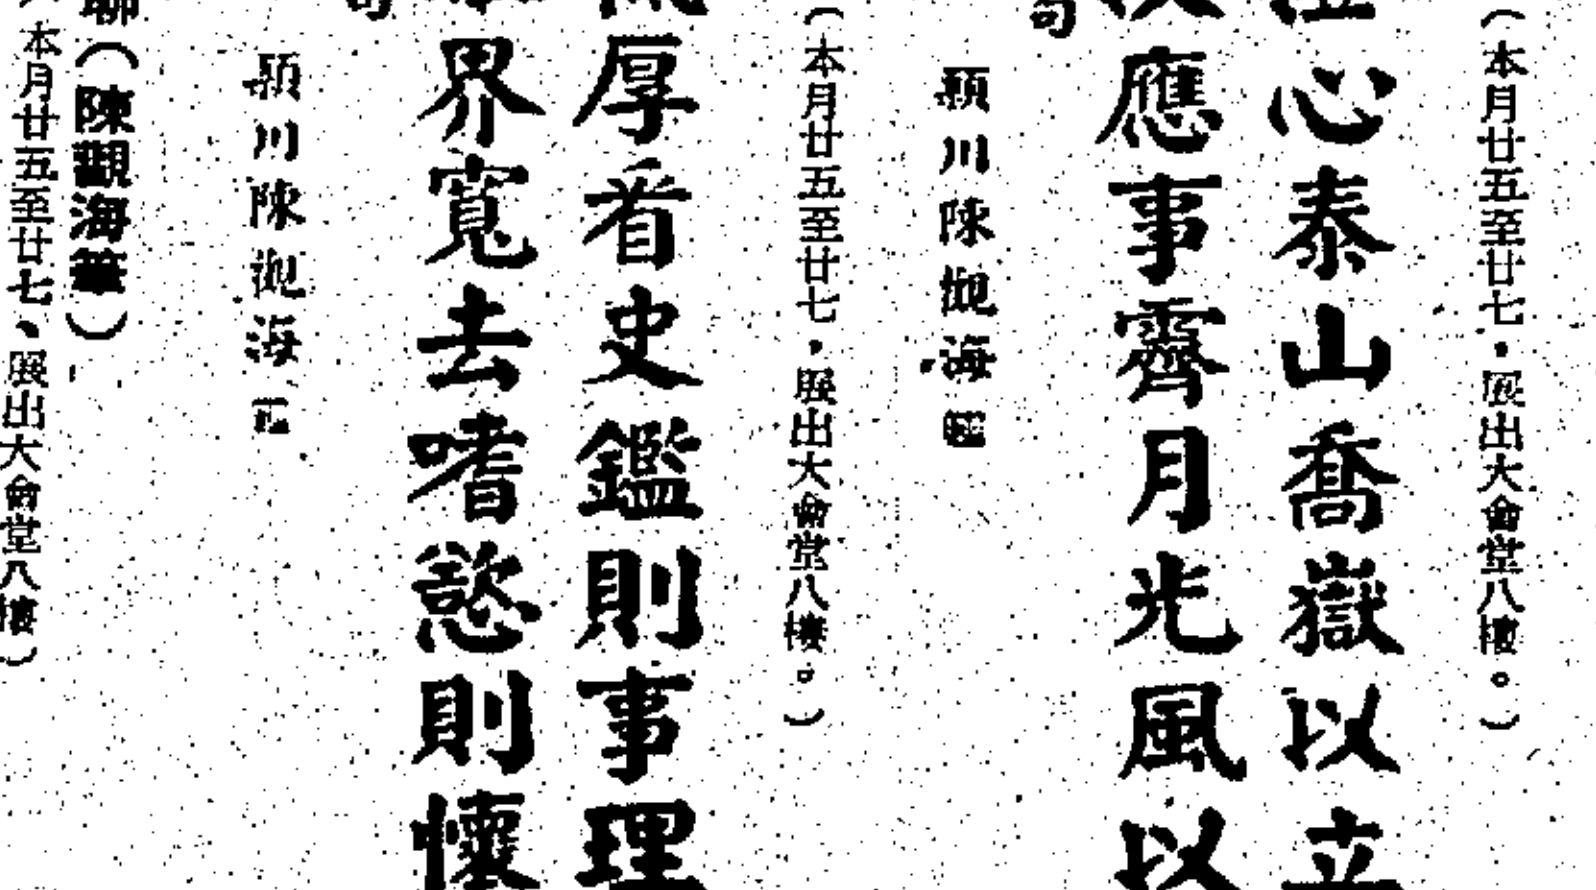 （本月廿五至廿七，展出大會堂八樓。）
心泰山喬嶽以立
應事霽月光風以
句
潁川陳觀海
（本月廿五至廿七，展出大會堂八樓。）
厚看史鑑則事理
界寬去嗜慾則懷
潁川陳觀海
聯（陳觀海筆）
本月廿五至廿七、展出大會堂八樓）